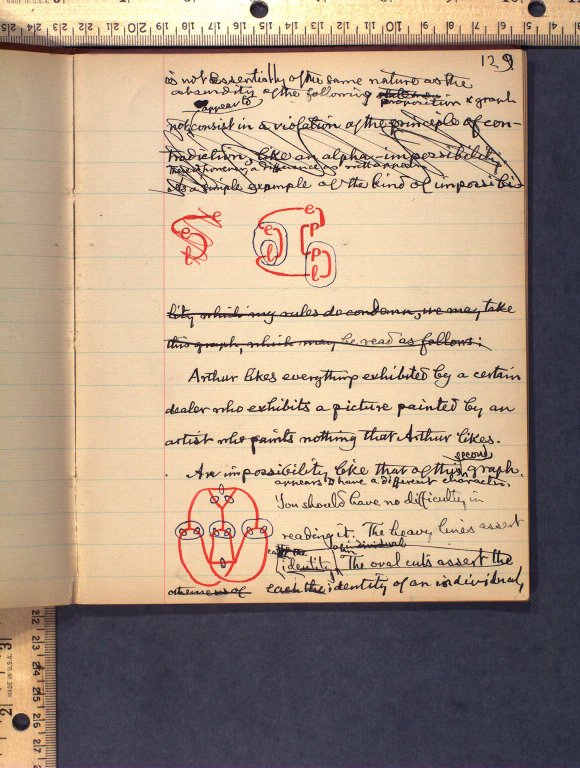 129
is not essentially of the same nature as the
absurdity of the following proposition & graph
appears to
not consist in a violation of the principle of con-
tradiction, like an alpha-impossibility.
There is however, a difference as will appear
As a simple example of the kind of impossibi-
e
e
l
e
p
e
l
p
l
lity which my rules do condemn, we may take
this graph, which may be read as follows:
Arthur likes everything exhibited by a certain
dealer who exhibits a picture painted by an
artist who paints nothing that Arthur likes.
second
An impossibility like that of this graph
appears to have a different character.
You should have no difficulty in
reading it. The heavy lines assert
of individuals
identity. The oval cuts assert the
each the identity of an individual,